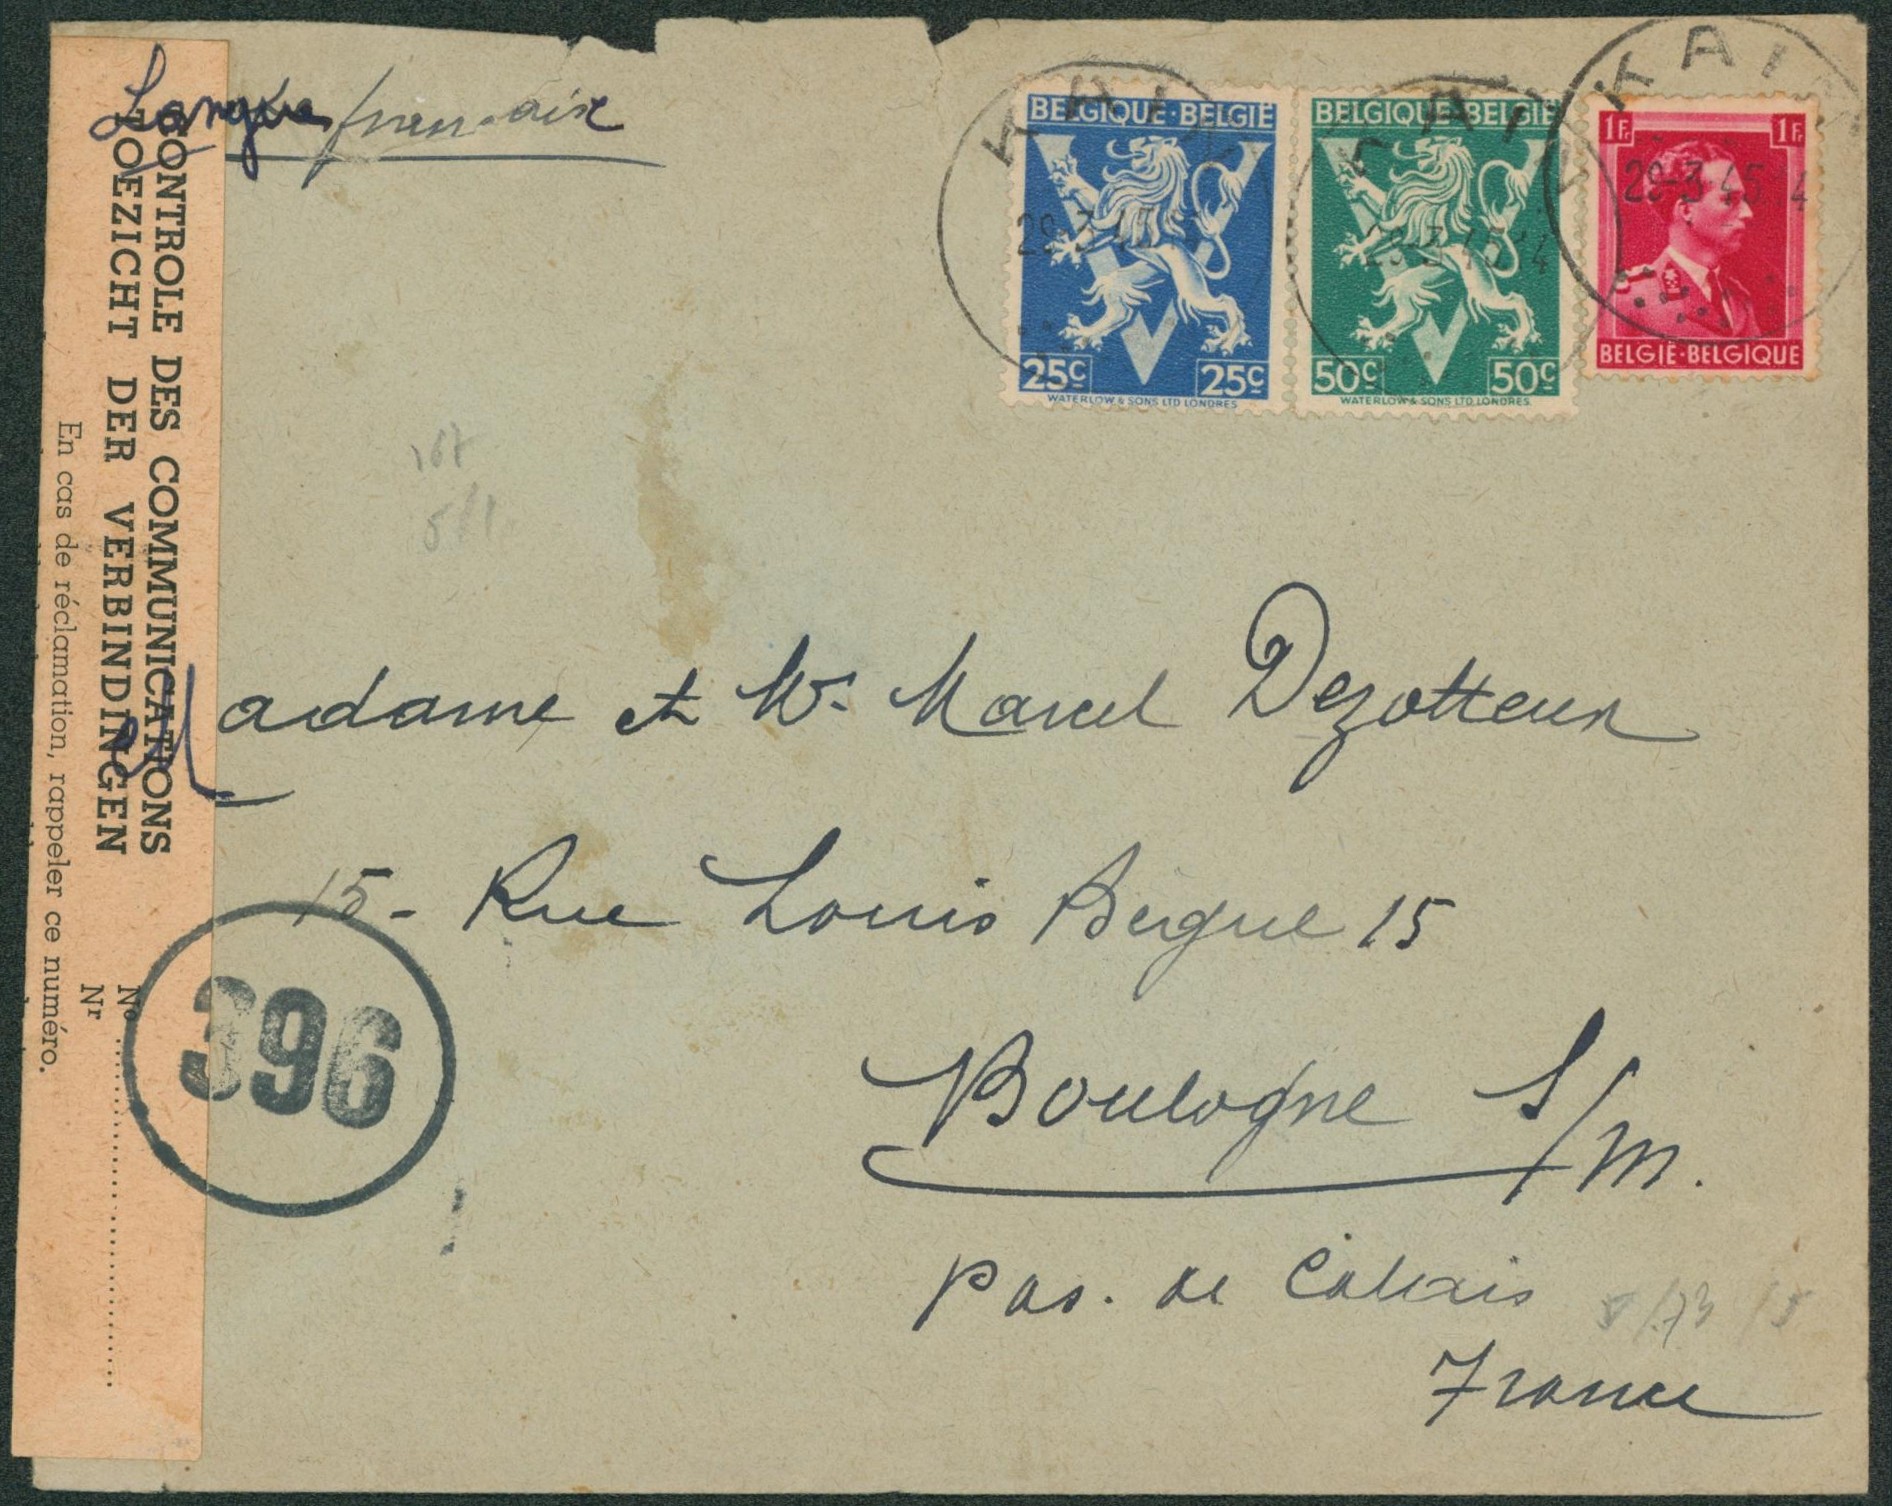 Langue française
CONTROLE DES COMMUNICATIONS
TOEZICHT DER VERBINDINGEN
No
Nr
En cas de réclamation, rappeler ce numéro.
396
KAIN
29-3 45
BELGIQUE·BELGIË
25c 25c
WATERLOW & SONS LTD LONDRES
KAIN
29-3 45 14
BELGIQUE·BELGIË
50c 50c
WATERLOW & SONS LTD LONDRES
KAIN
29-3 45 14
1Fr 1Fr
BELGIË·BELGIQUE
167
5/1
Madame et Mr. Marcel Dezotteux
15- Rue Louis Bègue 15
Boulogne S/m.
Pas. de Calais
France